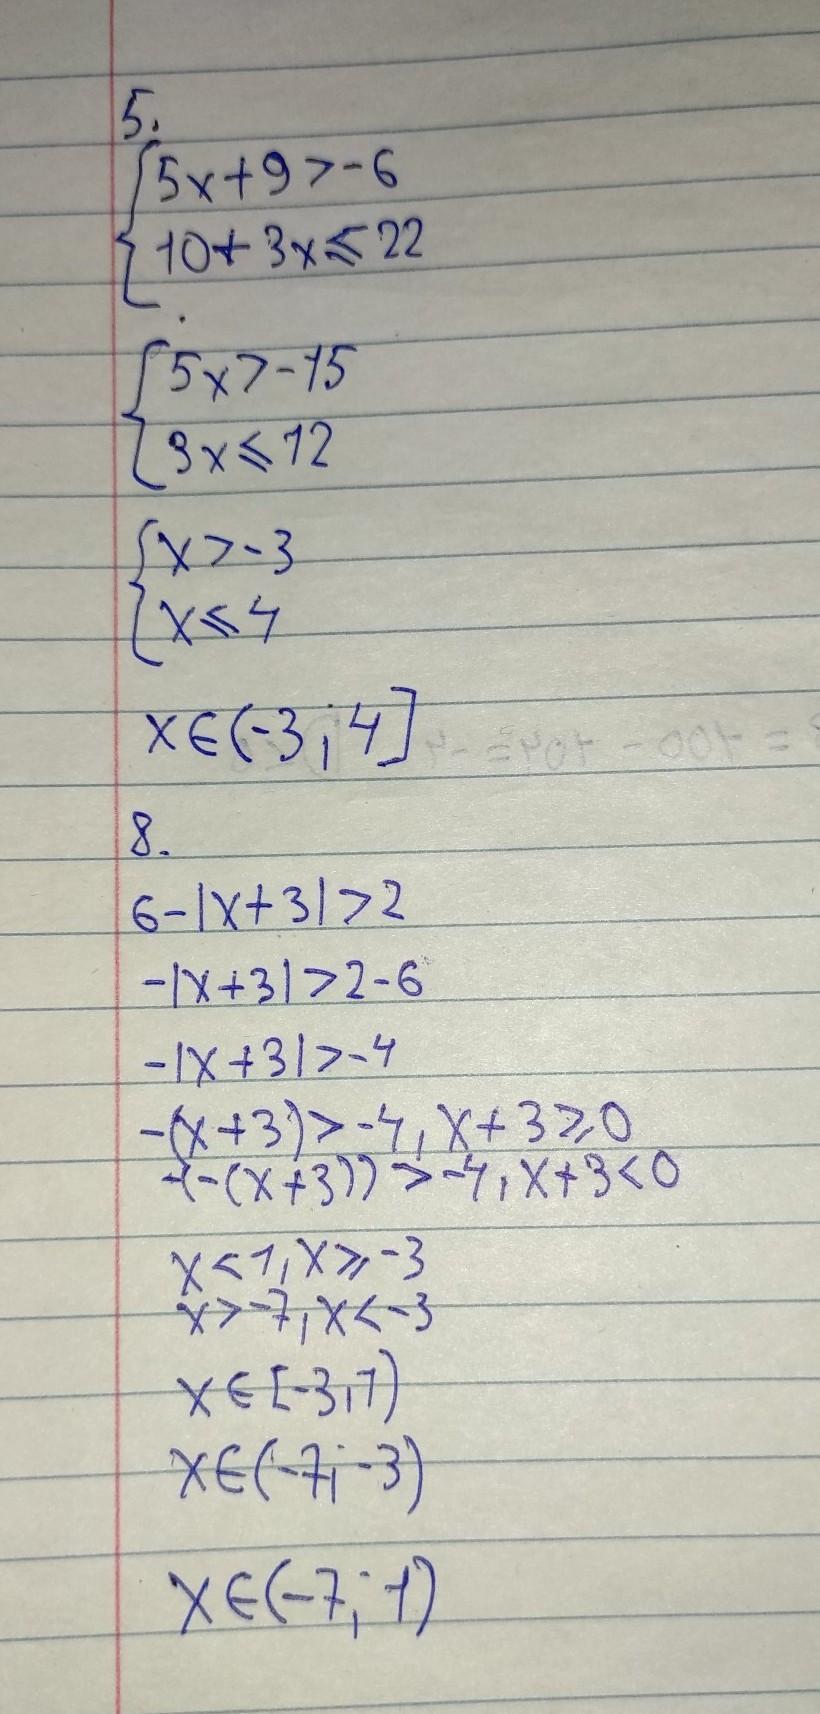 5.
5x+9>-6
10+3x⩽22
5x>-15
3x⩽12
x>-3
x⩽4
x∈(-3;4]
8.
6-|x+3|>2
-|x+3|>2-6
-|x+3|>-4
-(x+3)>-4, x+3⩾0
-(-(x+3))>-4, x+3<0
x<1, x⩾-3
x>-7, x<-3
x∈[-3,1)
x∈(-7;-3)
x∈(-7;1)